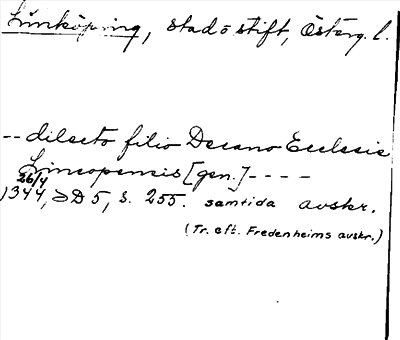 Linköping, stad o stift, Österg. l.
-- dilecto filio Decano Ecclesie
Lincopensis [gen.] ----
26/4
1344, DD 5, s. 255. samtida avskr.
(Tr. eft. Fredenheims avskr.)